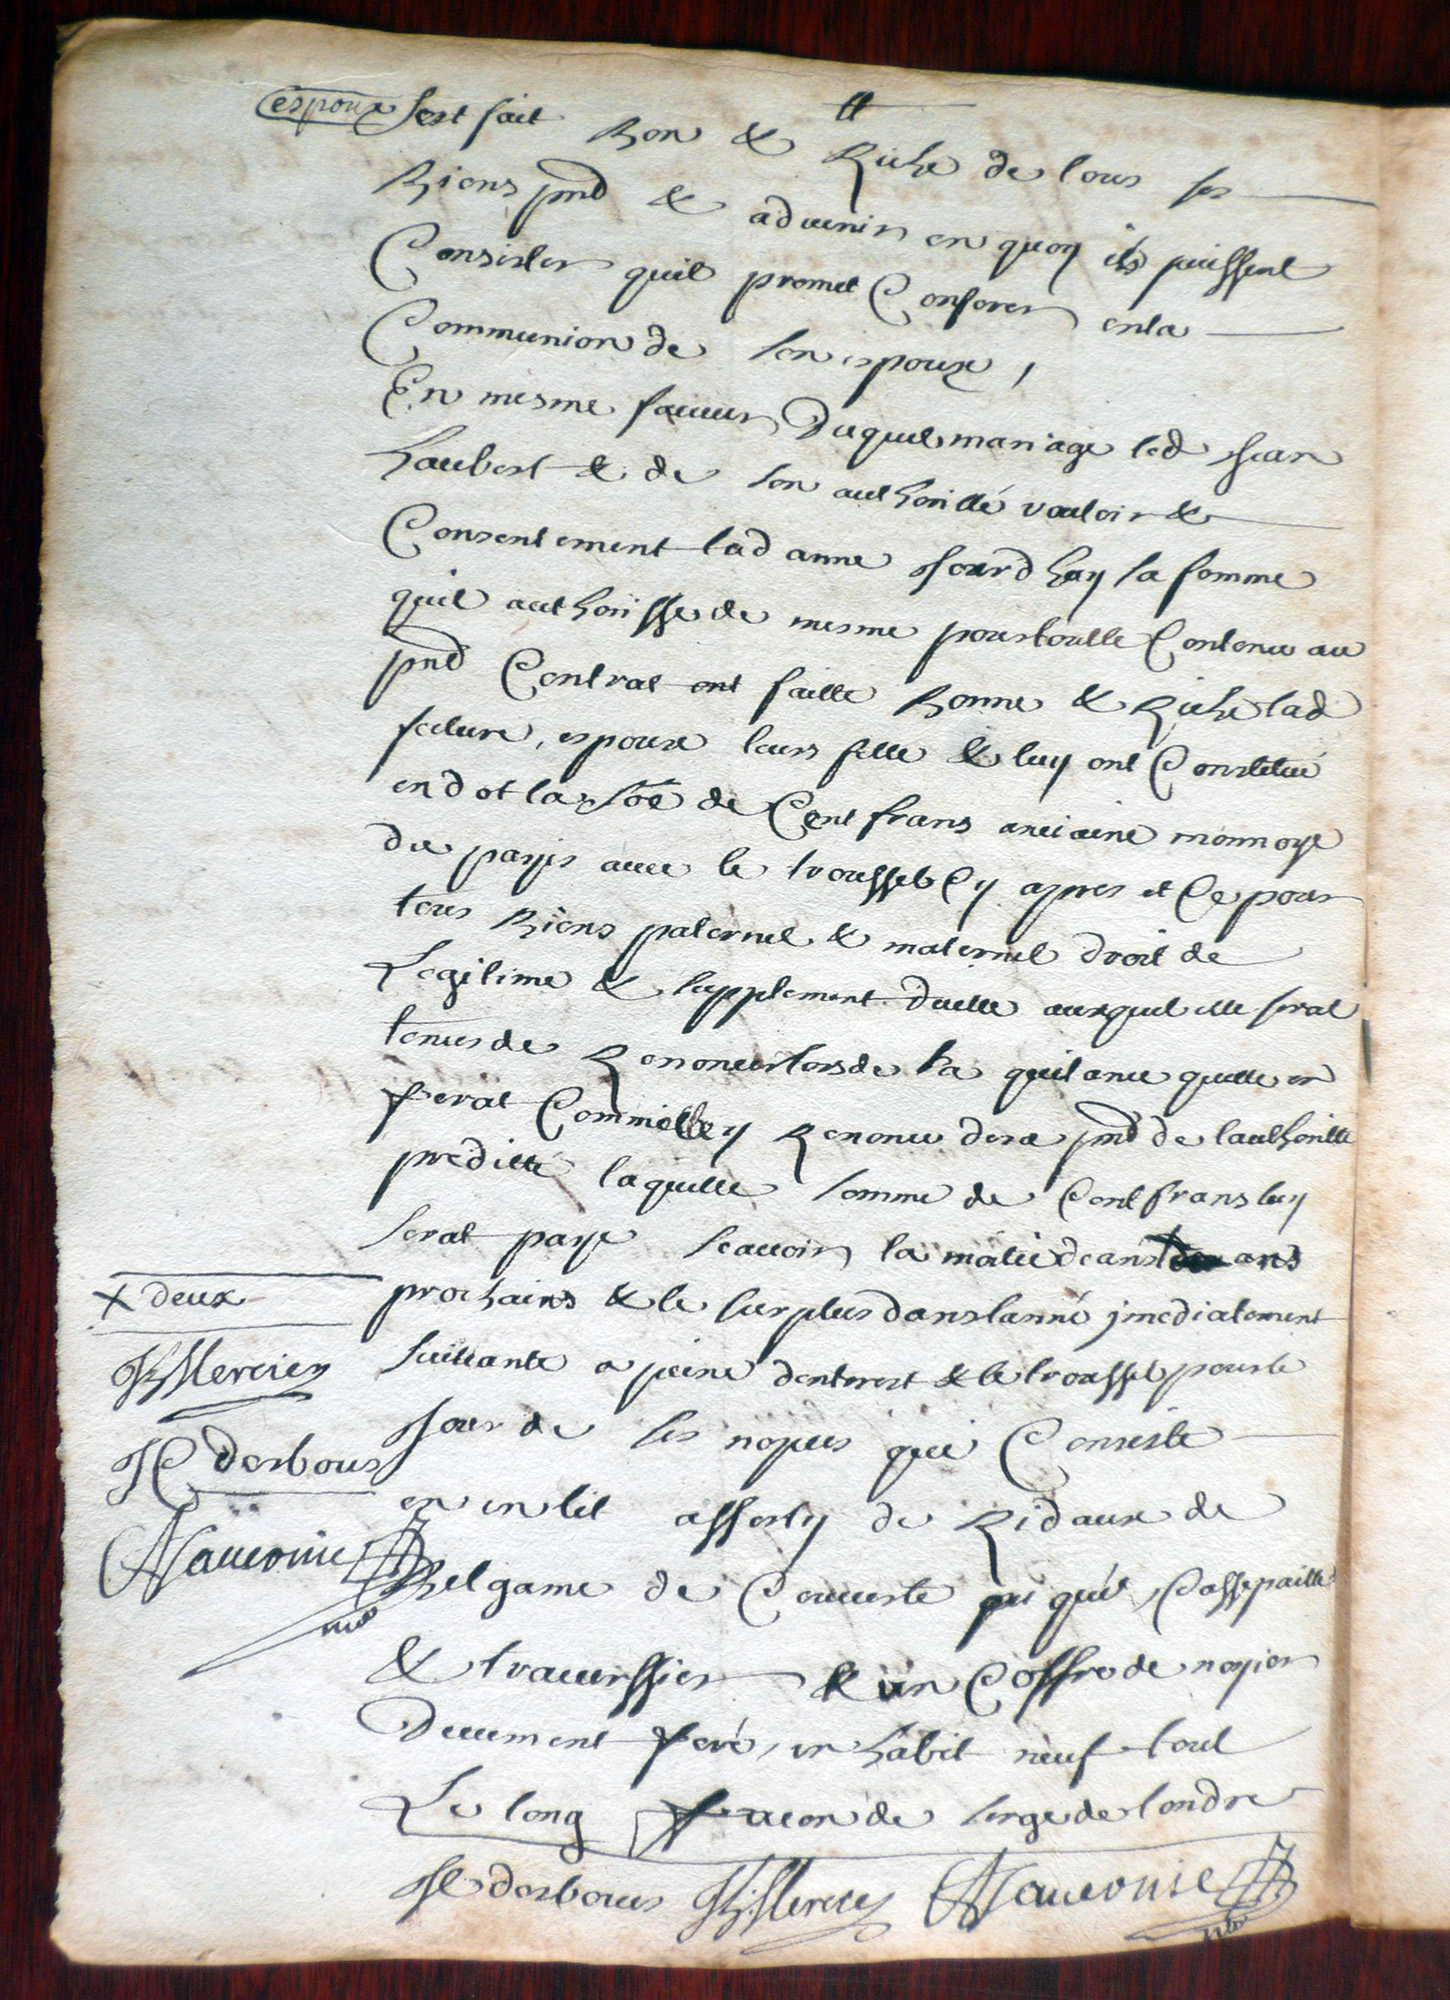 espoux sest fait Bon & Riche de tous ses
Biens pnt & advenir en quoy ils puissent
Consister quil promet Conferer en la
Communion de son espouze,
En mesme faveur Duquel mariage led Jean
haubert & de son authoritté vouloir &
Consentement lad anne Jourdhey sa femme
quil authorisse de mesme pour toutte Contenu au
pnt Contrat ont faitte Bonne & Riche lad
future, espouze leurs fille & luy ont Constitué
en dot la sôe de Cent frans anciaine monnoye
du payis avec le troussel Cy apres et Ce pour
tous Biens paternel & maternel droit de
Legitime & supplement dicelle auxquel elle serat
tenue de Renoncer lors de la quitance quelle en
ferat Comme elle y Renonce des a pnt de lauthoritté
preditte laquelle somme de Cent frans luy
serat paye scavoir la moitié dans + ans
prochains & le surplus dans lanné jmediatement
suivante a peine dinterest & le troussel pour le
Jour de ses nopces qui Consiste
en un lit assorty de Ridaux de
Belgame de Couverte piqué, Cassepaille
& traverssier & un Coffre de noyier
Duement feré, un habit neuf tout
Le long facon de serge de londre
+ deux
Mercier
JC desbous
Jauconne
not
JC desbous Mercier Jauconne
not